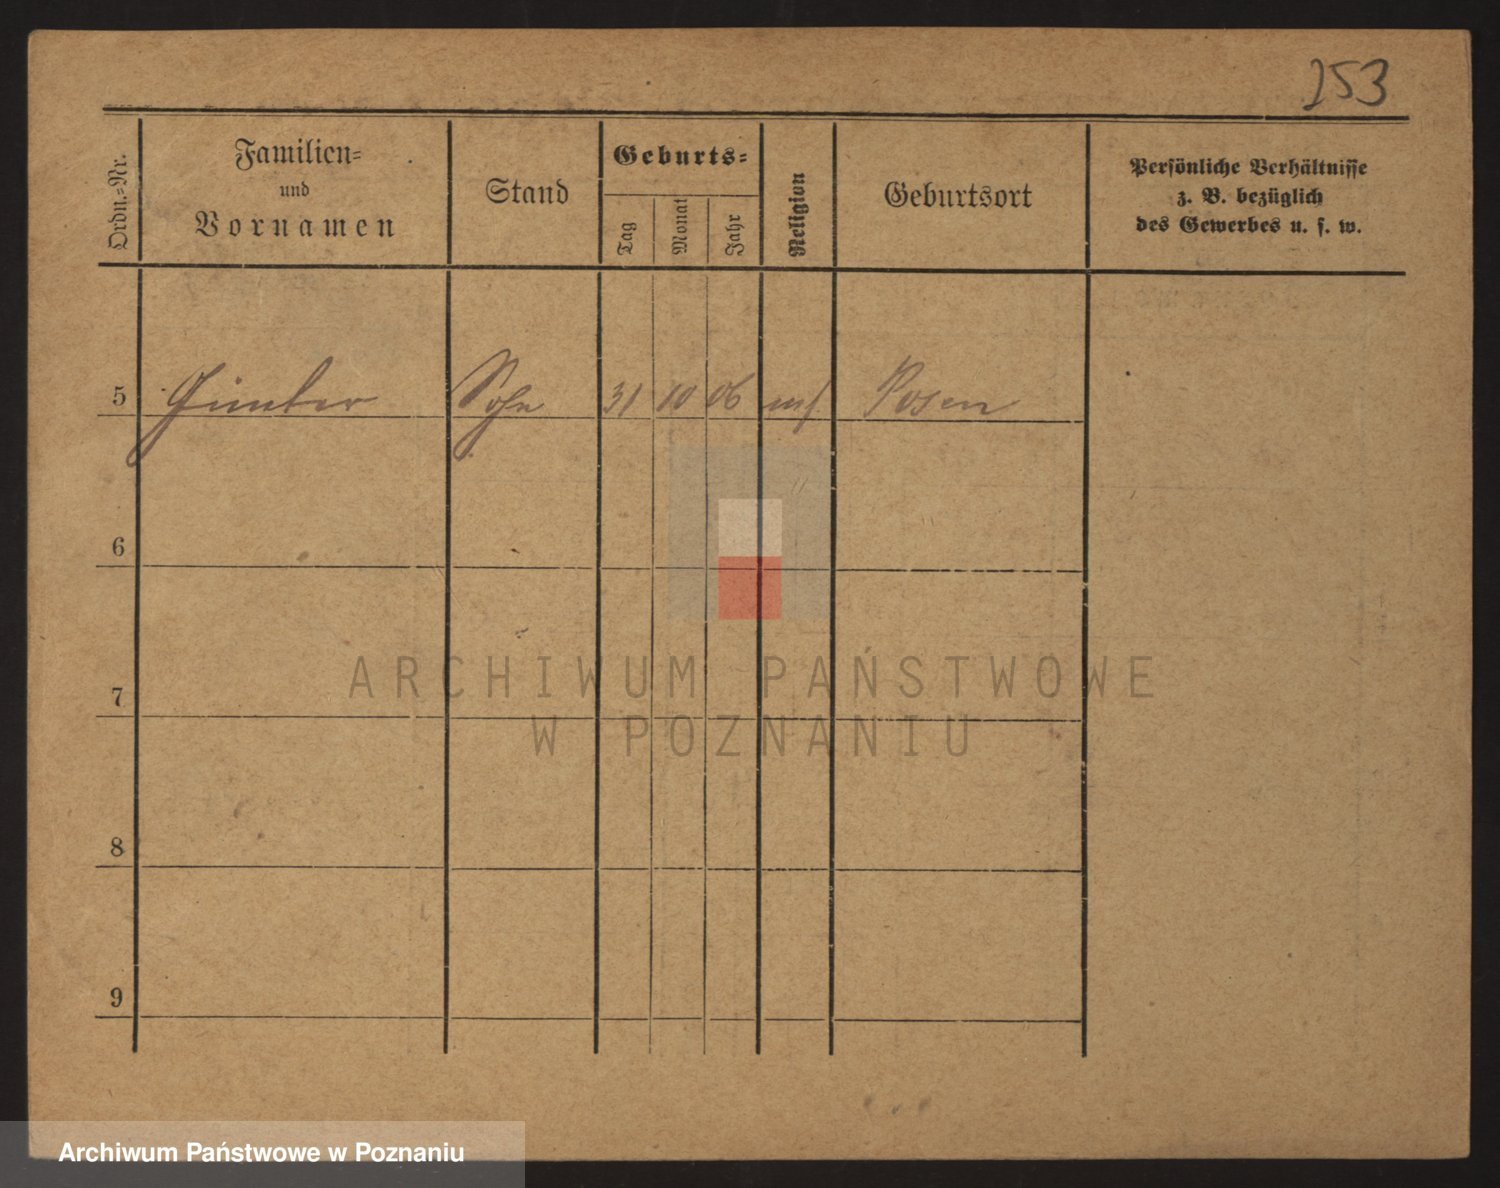 253
Ordn.=Nr.
Familien=
und
Vornamen
Stand
Geburts=
Tag
Monat
Jahr
Religion
Geburtsort
Persönliche Verhältnisse
z. B. bezüglich
des Gewerbes u. s. w.
5 Günter Sohn 31 10 06 Posen
6
7
8
9
ARCHIWUM PAŃSTWOWE
W POZNANIU
Archiwum Państwowe w Poznaniu